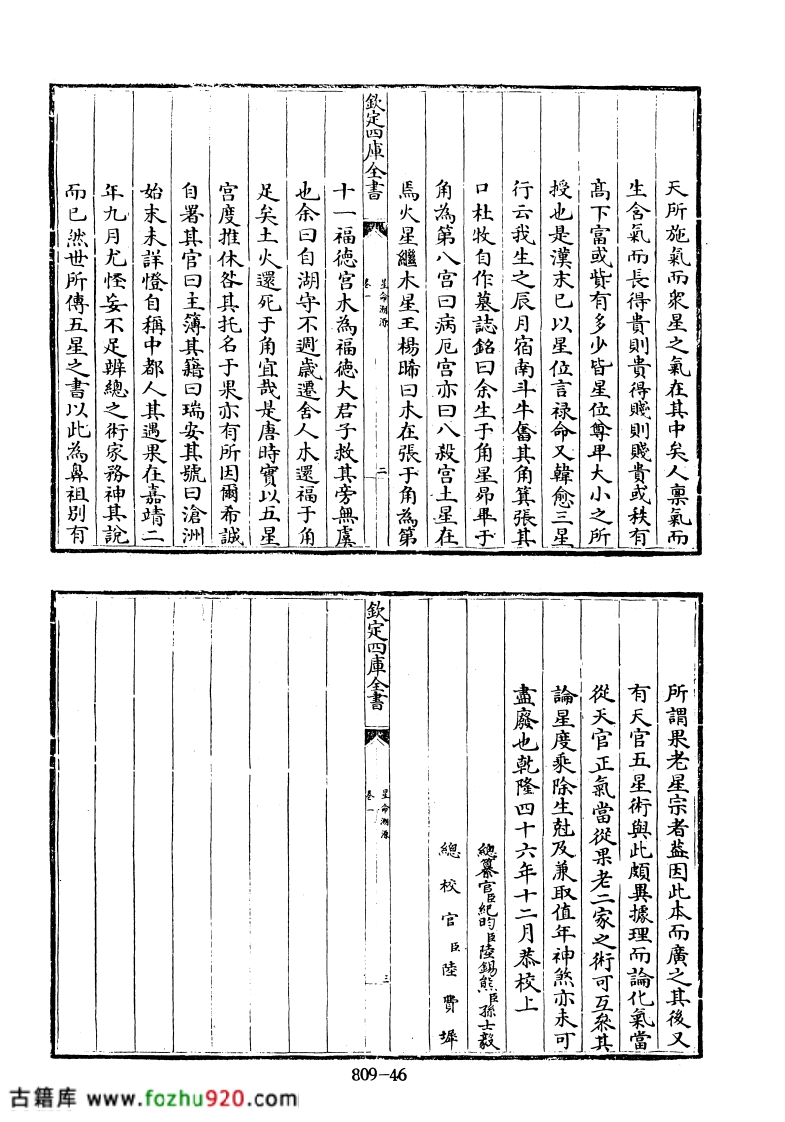 天所施氣而衆星之氣在其中矣人禀氣而
生含氣而長得貴則貴得賤則賤貴或秩有
髙下富或貲有多少皆星位尊卑大小之所
授也是漢末已以星位言禄命又韓愈三星
行云我生之辰月宿南斗牛奮其角箕張其
口杜牧自作墓誌銘曰余生于角星昴畢于
角為第八宫曰病厄宫亦曰八殺宫土星在
焉火星繼木星王楊晞曰木在張于角為第
欽定四庫全書
星命溯源
卷一
二
十一福德宫木為福德大君子救其旁無虞
也余曰自湖守不週歲遷舍人木還福于角
足矣土火還死于角宜哉是唐時實以五星
宫度推休咎其托名于果亦有所因爾希誠
自署其官曰主簿其籍曰瑞安其號曰滄洲
始末未詳憕自稱中都人其遇果在嘉靖二
年九月尤怪妄不足辨總之術家務神其說
而已然世所傳五星之書以此為鼻祖别有
所謂果老星宗者葢因此本而廣之其後又
有天官五星術與此頗異據理而論化氣當
從天官正氣當從果老二家之術可互叅其
論星度乘除生尅及兼取值年神煞亦未可
盡廢也乾隆四十六年十二月恭校上
總纂官臣紀昀臣陸錫熊臣孫士毅
總校官臣陸費墀
欽定四庫全書
星命溯源
卷一
三
809-46
古籍库 www.fozhu920.com